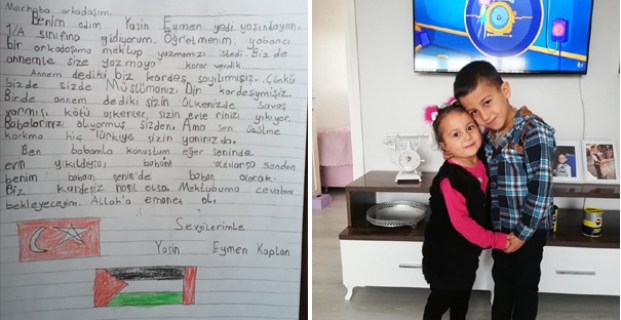 Merhaba arkadaşım.
Benim adım Yasin Eymen yedi yaşındayım.
1/A sınıfına gidiyorum. Öğretmenim yabancı
bir arkadaşıma mektup yazmamızı istedi. Biz de
annemle size yazmaya karar verdik.
Annem dediki biz kardeş sayılırmışız. Çünkü
bizde sizde Müslümanız. Din kardeşiymişiz.
Birde annem dediki sizin ülkenizde savaş
varmış, kötü askerler, sizin evlerinizi yıkıyor.
Babalarınız ölüyormuş sizden. Ama sen üzülme
korkma hiç Türkiye sizin yanınızda.
Ben babamla konuştum eğer seninde
evin yıkıldıysa, baban öldüyse senden
benim babam senin'de baban olacak.
Biz kardeşiz nasıl olsa. Mektubuma cevabını
bekleyeceğim. Allah'a emanet ol.
Sevgilerimle
Yasin Eymen Kaplan